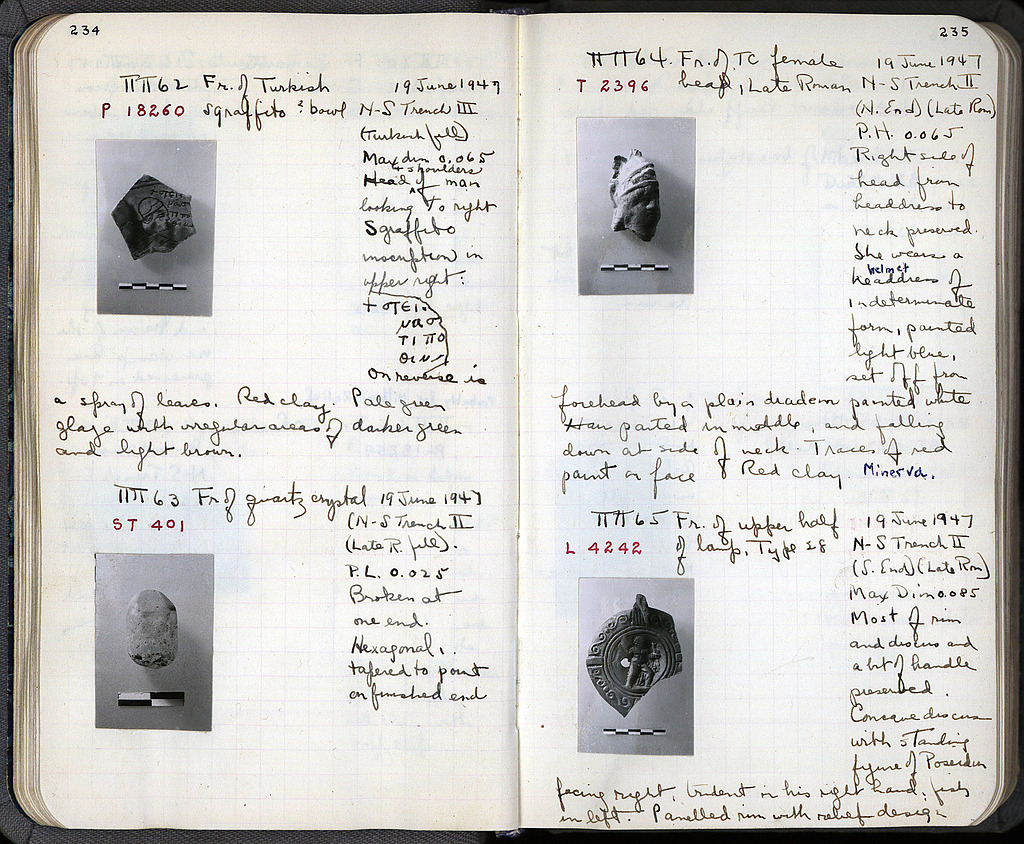 234
ΠΠ62 Fr. of Turkish 19 June 1947
P 18260 sgraffito ? bowl N-S Trench III
(Turkish fill)
Max dim 0.065
+ shoulders
Head of man
looking to right
Sgraffito
inscription in
upper right:
+ οτει
ναο
τι πο
On reverse is
a spray of leaves. Red clay Pale green
glaze with irregular areas of darker green
and light brown.
ΠΠ63 Fr of quartz crystal 19 June 1947
ST 401 (N-S Trench II
(Late R. fill).
P.L. 0.025
Broken at
one end.
Hexagonal,
tapered to point
on finished end
235
ΠΠ64. Fr. of TC female 19 June 1947
T 2396 head, Late Roman N-S Trench II
(N. End) (Late Rom)
P.H. 0.065
Right side of
head from
headdress to
neck preserved.
She wears a
helmet
headdress of
indeterminate
form, painted
light blue,
set off from
forehead by a plain diadem painted white
Hair parted in middle, and falling
down at side of neck. Traces of red
paint on face Red clay. Minerva.
ΠΠ65 Fr. of upper half 19 June 1947
L 4242 of lamp, Type 28 N-S Trench II
(S. End) (Late Rom)
Max Dim 0.085
Most of rim
and discus and
a bit of handle
preserved.
Concave discus
with standing
figure of Poseidon
facing right, trident in his right hand, fish
in left. Panelled rim with relief design